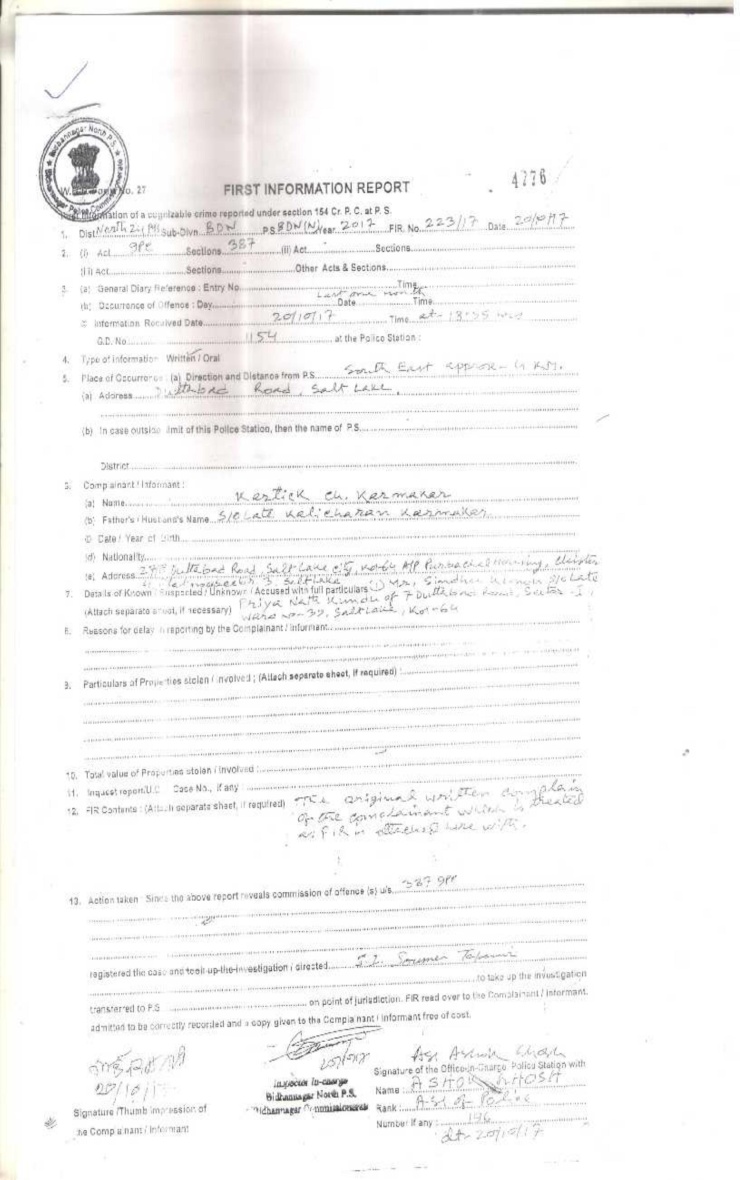 Bidhannagar North P.S.
Bidhannagar Police Commissionerate
4776
No. 27
FIRST INFORMATION REPORT
Information of a cognizable crime reported under section 154 Cr. P. C. at P. S.
1. Dist North 24 PGS Sub-Divn. BDN P.S BDN (N) Year. 2017 FIR. No. 223/17 Date 20/10/17
2. (i) Act IPC Sections 387 (ii) Act Sections
(iii) Act Sections Other Acts & Sections
3. (a) General Diary Reference : Entry No Time
Last one month
(b) Occurrence of Offence : Day Date Time
© Information Received Date 20/10/17 Time at- 18:35
G.D. No 1154 at the Police Station :
4. Type of information Written / Oral
5. Place of Occurrence : (a) Direction and Distance from P.S. South East approx- K.M.
(a) Address Duttabad Road, Salt Lake,
(b) In case outside limit of this Police Station, then the name of P.S.
District
Complainant / Informant :
(a) Name Kartick Ch. Karmakar
(b) Father's / Husband's Name S/o Late Kalicharan Karmakar
© Date / Year of Birth
(d) Nationality
(e) Address Duttabad Road, Salt Lake City, Kol-64 A/P Purbachal Housing, Cluster
Saltlake
7. Details of Known / Suspected / Unknown / Accused with full particulars (1) Mr. S/o Late
(Attach separate sheet, if necessary) Priya Nath Kundu of 7 Duttabad Road, Sector-I,
Ward no-32, Salt Lake, Kol-64
8. Reasons for delay in reporting by the Complainant / Informant
9. Particulars of Properties stolen / involved ; (Attach separate sheet, if required) :
10. Total value of Properties stolen / involved :
11. Inquest report/U.C. Case No., if any
12. FIR Contents : (Attach separate sheet, if required) The original written complain
of the complainant which is treated
as FIR is attached here with.
13. Action taken Since the above report reveals commission of offence (s) u/s. 387 IPC
registered the case and took up the investigation / directed S.I. Soumen
to take up the investigation
transferred to P.S on point of jurisdiction. FIR read over to the Complainant / Informant.
admitted to be correctly recorded and a copy given to the Complainant / Informant free of cost.
20/10/17
Inspector In-charge
Bidhannagar North P.S.
Bidhannagar Commissionerate
20/10/17
Signature /Thumb impression of
the Complainant / Informant
ASI Ashok Ghosh
Signature of the Officer-in-Charge, Police Station with
Name : ASHOK GHOSH
Rank : A.S.I of Police
Number if any : 196
dt- 20/10/17